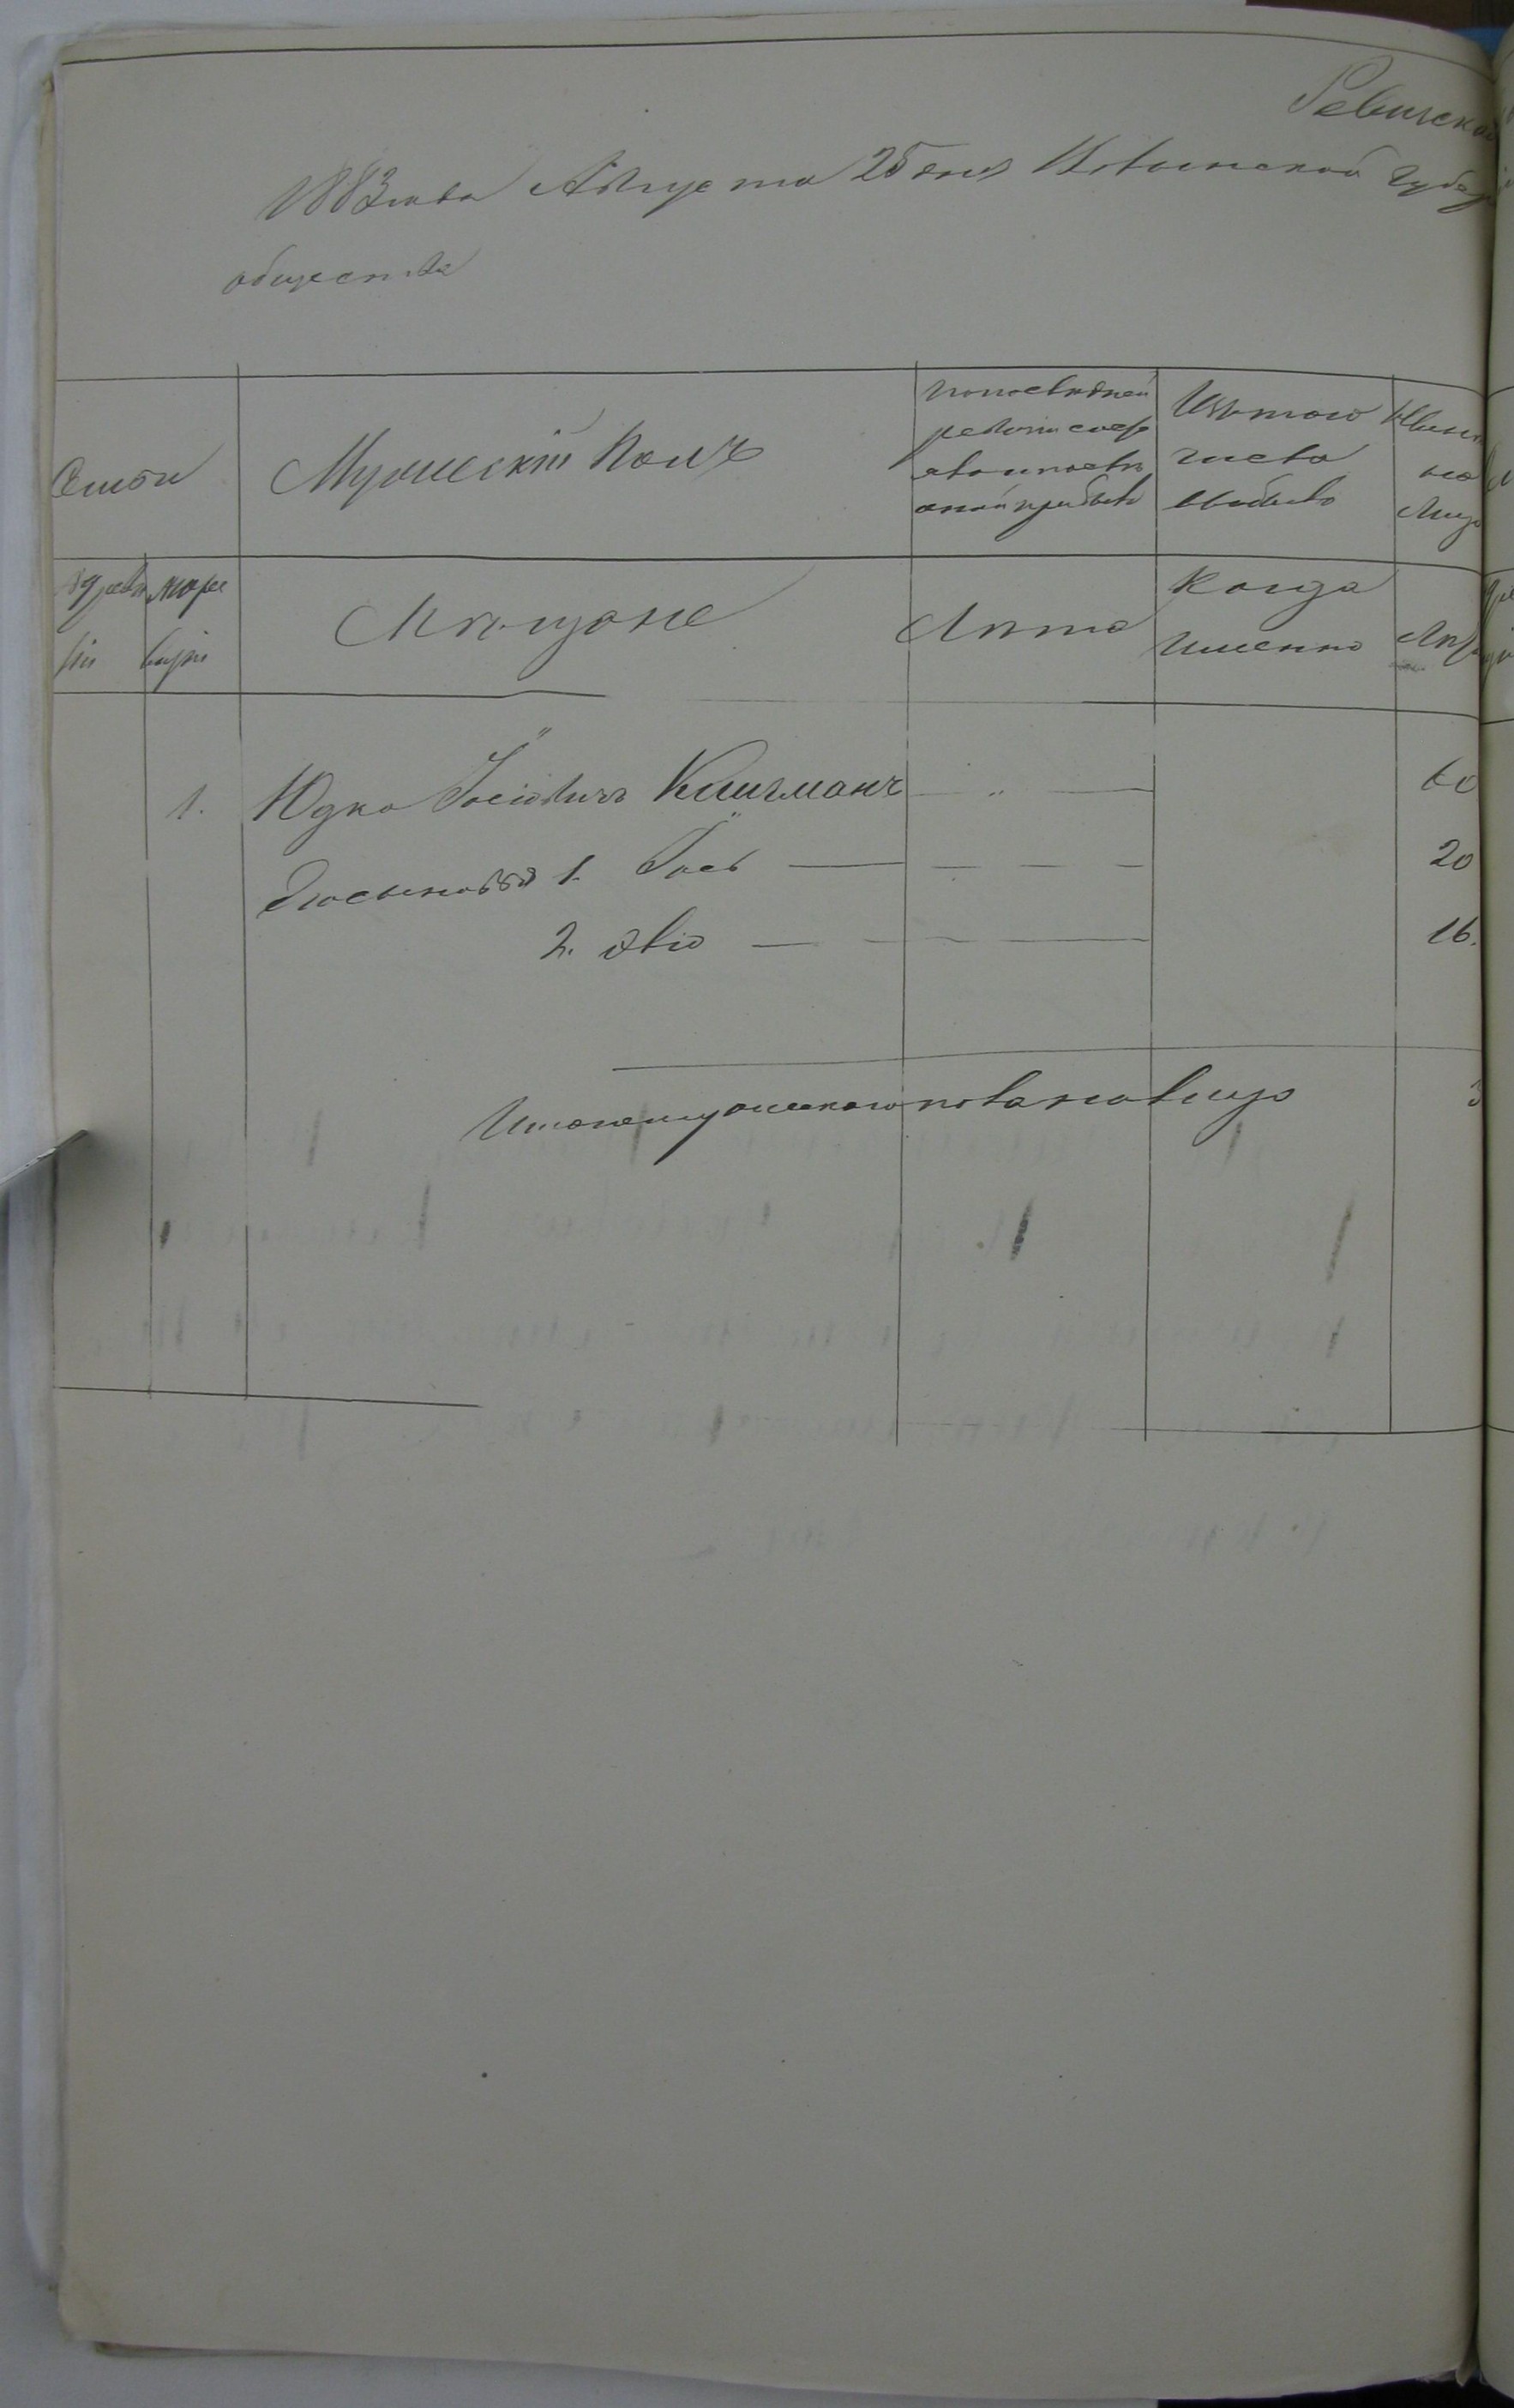 Ревизская
1883 года Августа 25 дня Волынской Губер
общества
Семьи
Мужеский полъ
По последней
ревизии состо
яло и после
оной прибыло
Изъ того
числа
выбыло
Ныне
на
лицо
№ реви
зіи
Мещане
Лета
Когда
именно
Лета
1. Юдко Іосіовичъ Кишманъ — „ — 60
Его сыновья 1. Іось — — — — 20
2. Овіо — — — — 16.
Итого мужеского пола на лицо 3